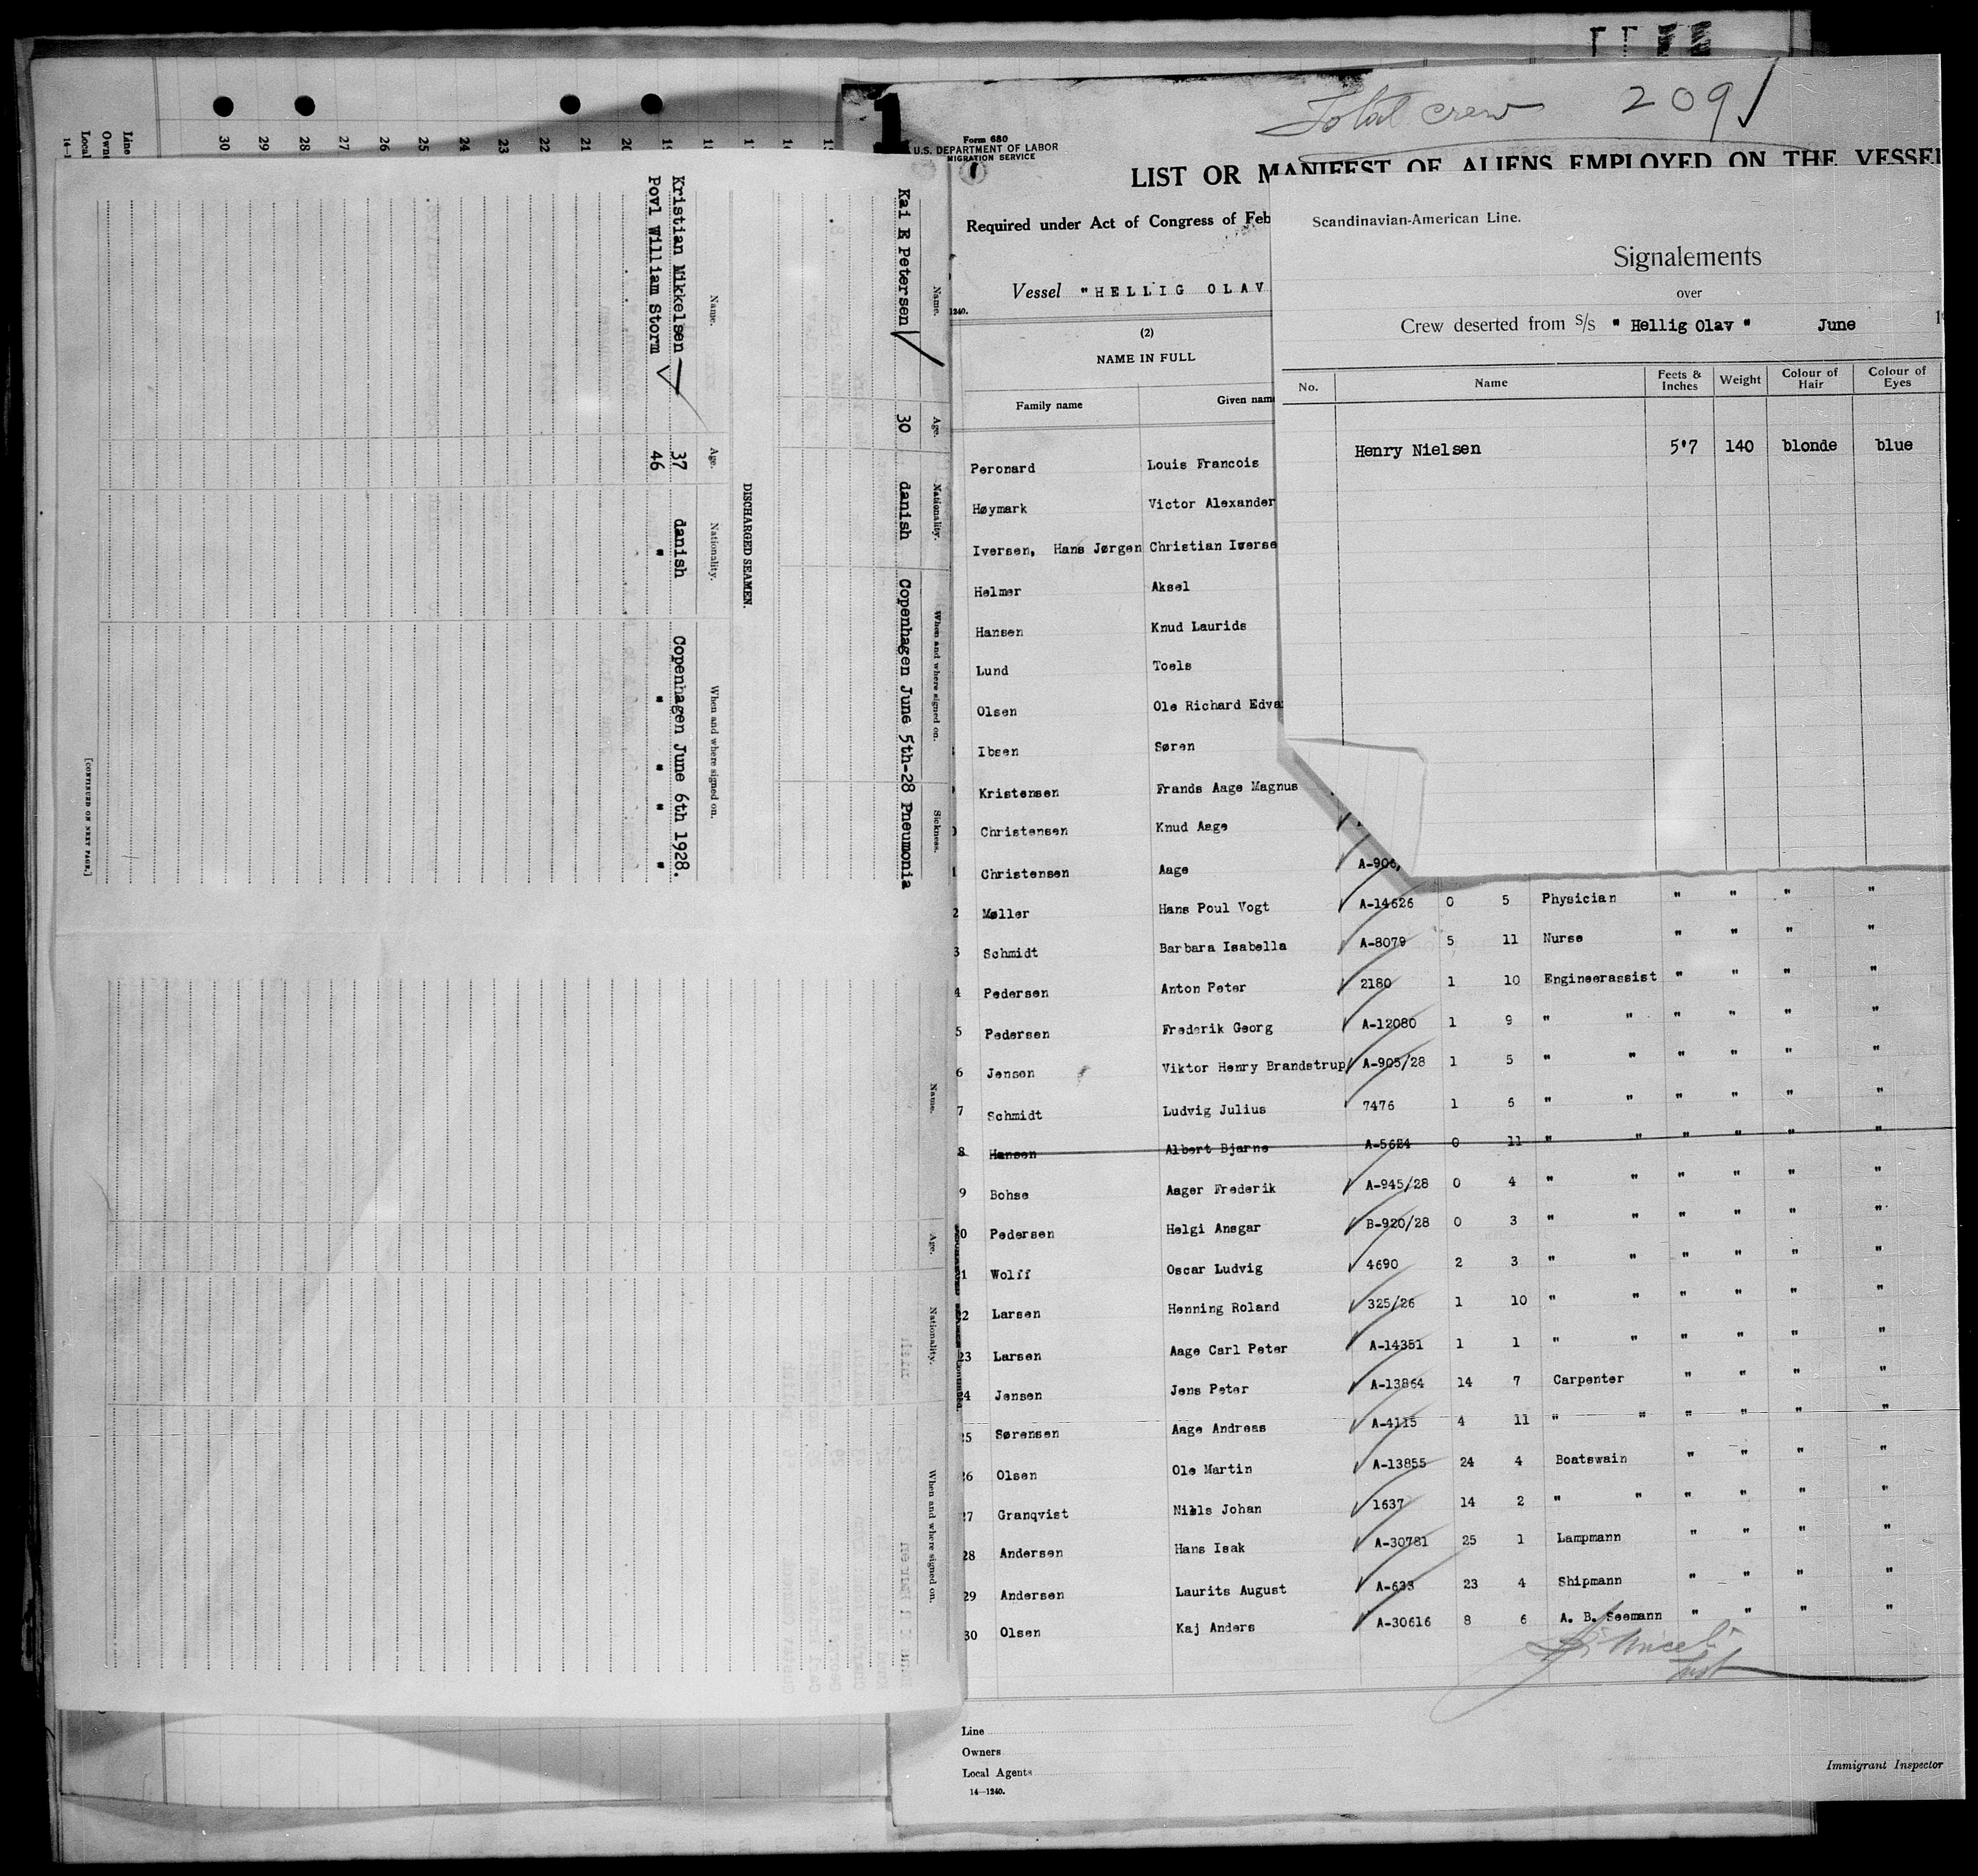 Line
Local
14-1
30 29 28 27 26 25 24 23 22 21 20 19
Name. Age. Nationality. When and where signed on. Sickness.
Kai E Petersen 30 danish Copenhagen June 5th-28 Pneumonia
DISCHARGED SEAMEN.
Name. Age. Nationality. When and where signed on.
Kristian Mikkelsen 37 danish Copenhagen June 6th 1928.
Povl William Storm 46 " " " " "
[CONTINUED ON NEXT PAGE.]
Name. Age. Nationality. When and where signed on.
1
Total crew 209
Form 680
U.S. DEPARTMENT OF LABOR
MIGRATION SERVICE
LIST OR MANIFEST OF ALIENS EMPLOYED ON THE VESSEL
Required under Act of Congress of Feb
Vessel "HELLIG OLAV
1240.
(2)
NAME IN FULL
Family name Given name
Scandinavian-American Line.
Signalements
over
Crew deserted from S/S " Hellig Olav " June
No. Name Feets & Inches Weight Colour of Hair Colour of Eyes
Henry Nielsen 5'7 140 blonde blue
Peronard Louis Francois
Høymark Victor Alexander
Iversen, Hans Jørgen Christian Iverse
Helmer Aksel
Hansen Knud Laurids
Lund Toels
Olsen Ole Richard Edva
Ibsen Søren
Kristensen Frands Aage Magnus
Christensen Knud Aage
1 Christensen Aage A-906,
2 Møller Hans Poul Vogt A-14626 0 5 Physician " " " "
3 Schmidt Barbara Isabella A-8079 5 11 Nurse " " " "
4 Pedersen Anton Peter 2180 1 10 Engineerassist " " " "
5 Pedersen Frederik Georg A-12080 1 9 " " " " " "
6 Jensen Viktor Henry Brandstrup A-905/28 1 5 " " " " " "
7 Schmidt Ludvig Julius 7476 1 6 " " " " " "
8 Hansen Albert Bjarne A-5624 0 11 " " " " " "
9 Bohse Aager Frederik A-945/28 0 4 " " " " " "
0 Pedersen Helgi Ansgar B-920/28 0 3 " " " " " "
1 Wolff Oscar Ludvig 4690 2 3 " " " " " "
2 Larsen Henning Roland 325/26 1 10 " " " " " "
23 Larsen Aage Carl Peter A-14351 1 1 " " " " " "
4 Jensen Jens Peter A-13864 14 7 Carpenter " " " "
5 Sørensen Aage Andreas A-4115 4 11 " " " " " "
6 Olsen Ole Martin A-13855 24 4 Boatswain " " " "
7 Granqvist Niels Johan 1637 14 2 " " " " " "
28 Andersen Hans Isak A-30781 25 1 Lampmann " " " "
29 Andersen Laurits August A-633 23 4 Shipmann " " " "
30 Olsen Kaj Anders A-30616 8 6 A. B. Seemann " " " "
Line
Owners
Local Agents
14-1240.
Immigrant Inspector